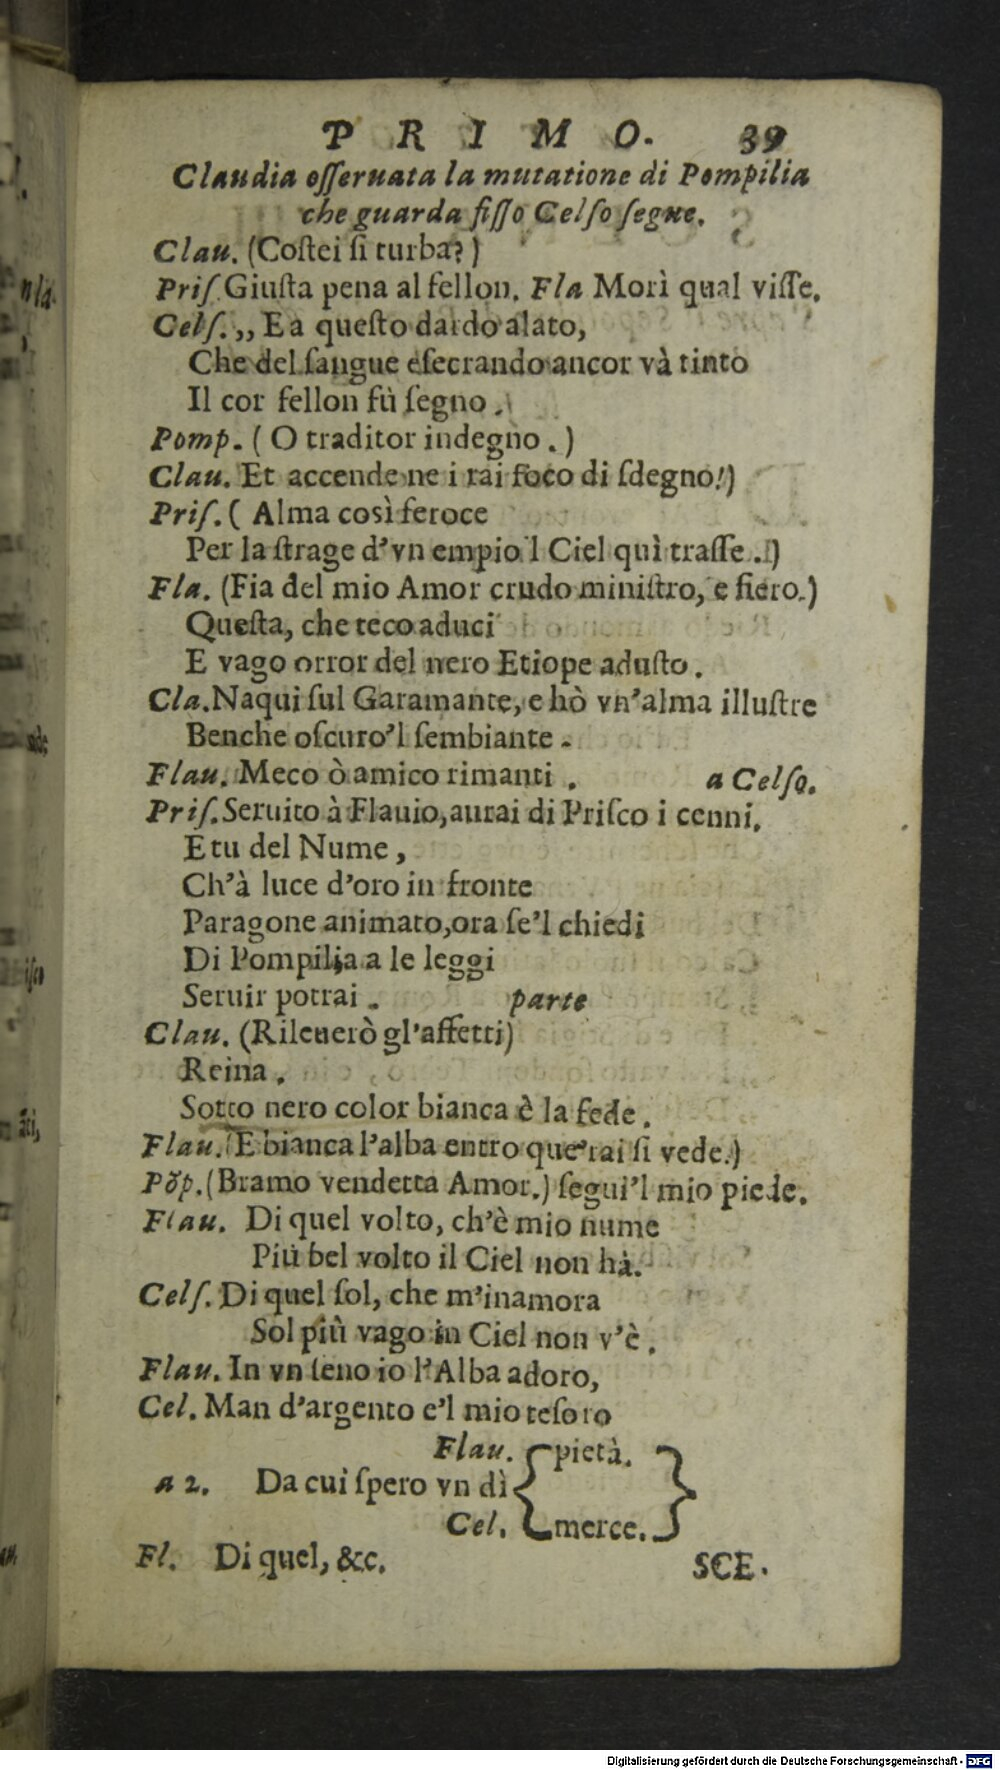 PRIMO. 39
Claudia osseruata la mutatione di Pompilia
che guarda fisso Celso segue.
Clau. (Costei si turba?)
Pris Giusta pena al fellon. Fla Morì qual visse.
Cels. ,, E a questo dardo alato,
Che del sangue esecrando ancor và tinto
Il cor fellon fù segno.
Pomp. ( O traditor indegno. )
Clau. Et accende ne i rai foco di sdegno!)
Pris. ( Alma così feroce
Per la strage d'vn empio'l Ciel quì trasse.)
Fla. (Fia del mio Amor crudo ministro, e fiero.)
Questa, che teco aduci
E vago orror del nero Etiope adusto.
Cla. Naqui sul Garamante, e hò vn'alma illustre
Benche oscuro'l sembiante.
Flau. Meco ò amico rimanti. a Celso.
Pris. Seruito à Flauio, aurai di Prisco i cenni.
E tu del Nume,
Ch'à luce d'oro in fronte
Paragone animato, ora se'l chiedi
Di Pompilia a le leggi
Seruir potrai. parte
Clau. (Rileuerò gl'affetti)
Reina.
Sotto nero color bianca è la fede.
Flau. (E bianca l'alba entro que'rai si vede.)
Põp. (Bramo vendetta Amor.) segui'l mio piede.
Flau. Di quel volto, ch'è mio nume
Più bel volto il Ciel non hà.
Cels. Di quel sol, che m'inamora
Sol più vago in Ciel non v'è.
Flau. In vn seno io l'Alba adoro,
Cel. Man d'argento e'l mio tesoro
Flau. { pietà. }
a 2. Da cui spero vn dì
Cel. { merce. }
Fl. Di quel, &c.
SCE.
Digitalisierung gefördert durch die Deutsche Forschungsgemeinschaft - DFG